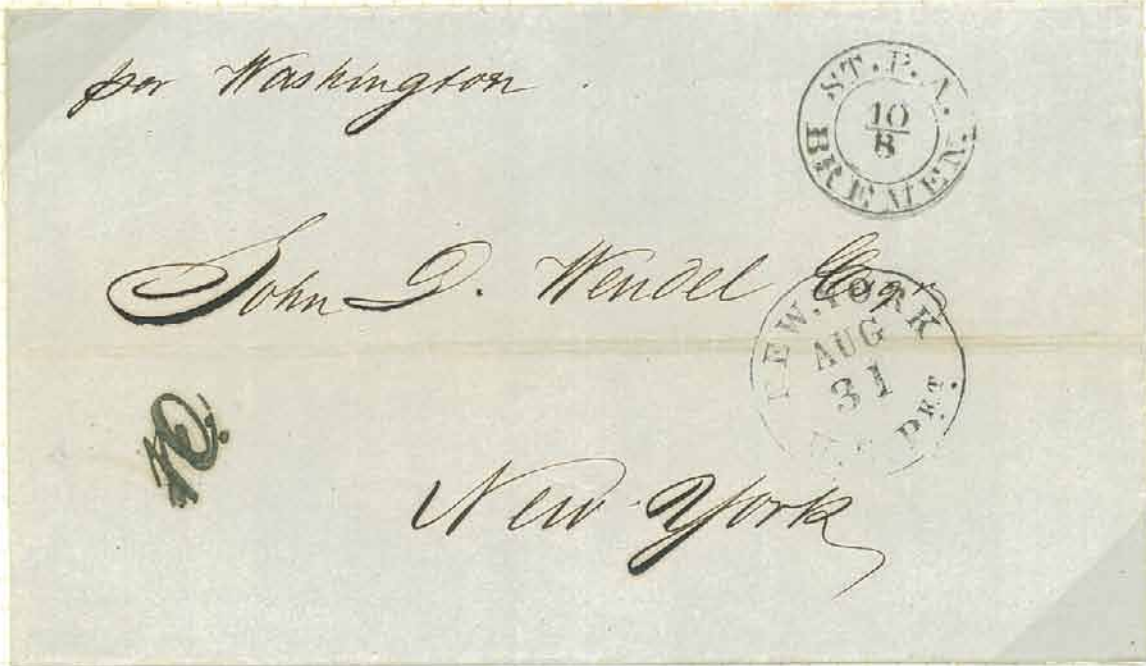 per Washington
ST. P. A.
10
8
BREMEN.
John D. Wendel Esqr
NEW-YORK
AUG
31
PKT.
New York